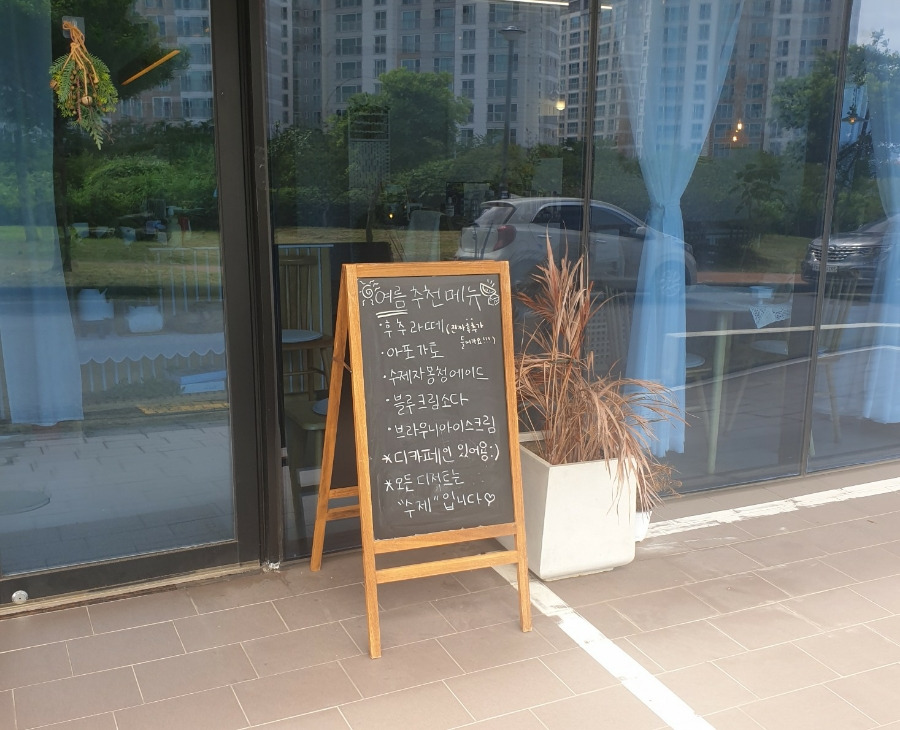 여름 추천 메뉴
·후추라떼 (진짜 후추가
들어가요!!!)
·아포가토
·수제자몽청에이드
·블루크림소다
·브라우니아이스크림
*디카페인 있어용:)
*모든 디저트는
"수제"입니다♡